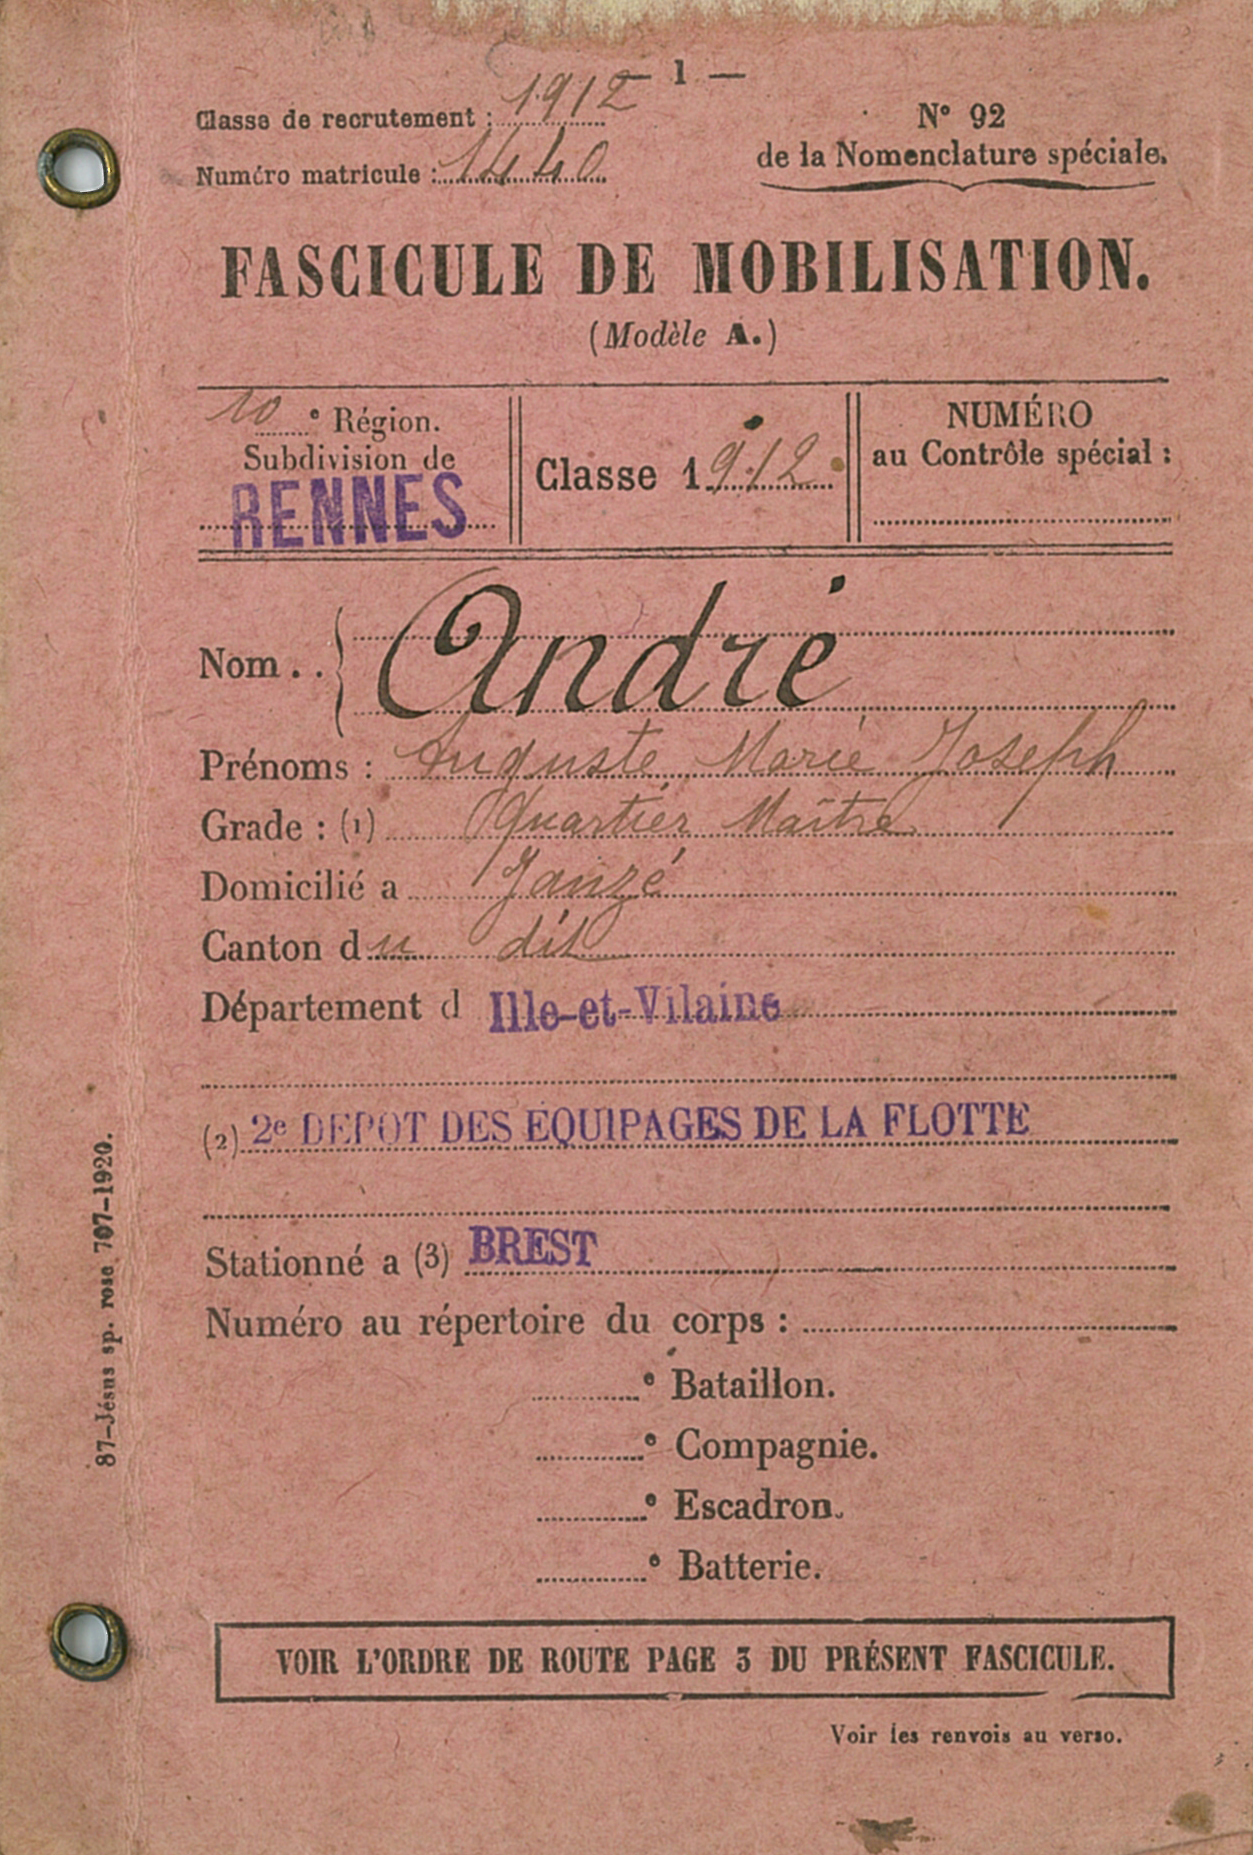 — 1 —
Classe de recrutement : 1912
Numéro matricule : 1440
N° 92
de la Nomenclature spéciale.
FASCICULE DE MOBILISATION.
(Modèle A.)
10e Région.
Subdivision de
RENNES
Classe 1912
NUMÉRO
au Contrôle spécial :
Nom .. André
Prénoms : Auguste Marie Joseph
Grade : (1) Quartier Maître
Domicilié a Janzé
Canton du dit
Département d Ille-et-Vilaine
(2) 2e DEPOT DES EQUIPAGES DE LA FLOTTE
Stationné a (3) BREST
Numéro au répertoire du corps :
e Bataillon.
e Compagnie.
e Escadron.
e Batterie.
VOIR L'ORDRE DE ROUTE PAGE 3 DU PRÉSENT FASCICULE.
Voir les renvois au verso.
87-Jésus sp. rose 707-1920.